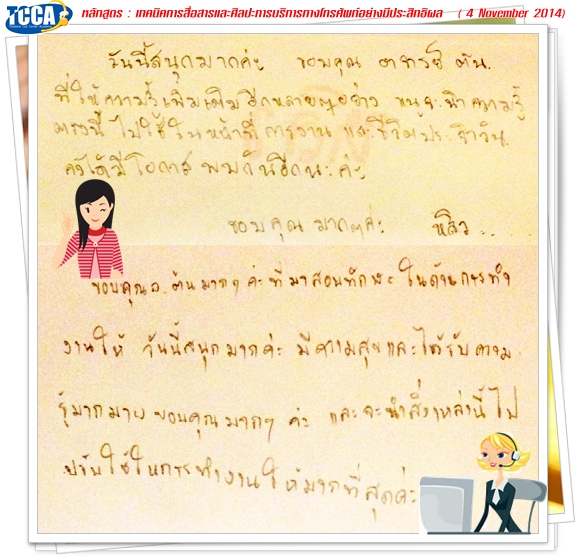 TCCA
Thailand Call Center Academy
หลักสูตร : เทคนิคการสื่อสารและศิลปะการบริการทางโทรศัพท์อย่างมีประสิทธิผล ( 4 November 2014)
วันนี้สนุกมากค่ะ ขอบคุณ อาจารย์ ต้น
ที่ให้ความรู้เพิ่มเติมอีกหลายๆอย่าง หนูจะนำความรู้
ตรงนี้ ไปใช้ในหน้าที่การงาน และชีวิตประจำวัน
คงได้มีโอกาสพบกันอีกนะค่ะ
ขอบคุณ มากๆค่ะ หลิว..
ขอบคุณอ.ต้นมากๆ ค่ะที่มาสอนทักษะ ในด้านการทำ
งานให้ วันนี้สนุกมากค่ะ มีความสุขและได้รับความ
รู้มากมาย ขอบคุณมากๆ ค่ะ และจะนำสิ่งเหล่านี้ไป
ปรับใช้ในการทำงานให้มากที่สุดค่ะ